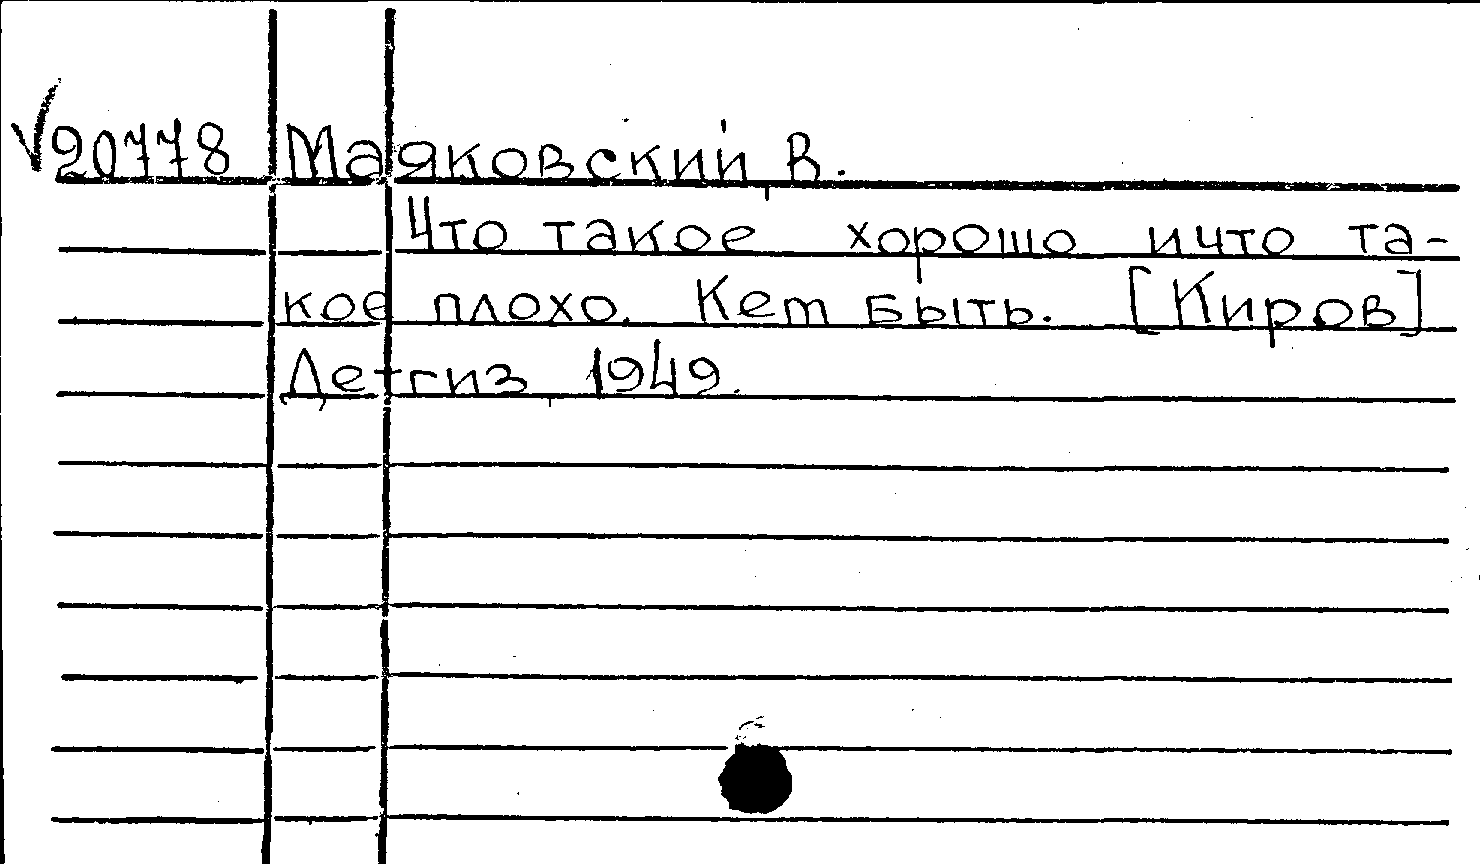 √20778 Маяковский В.
Что такое хорошо и что та-
кое плохо. Кем быть. [Киров]
Детгиз 1949.